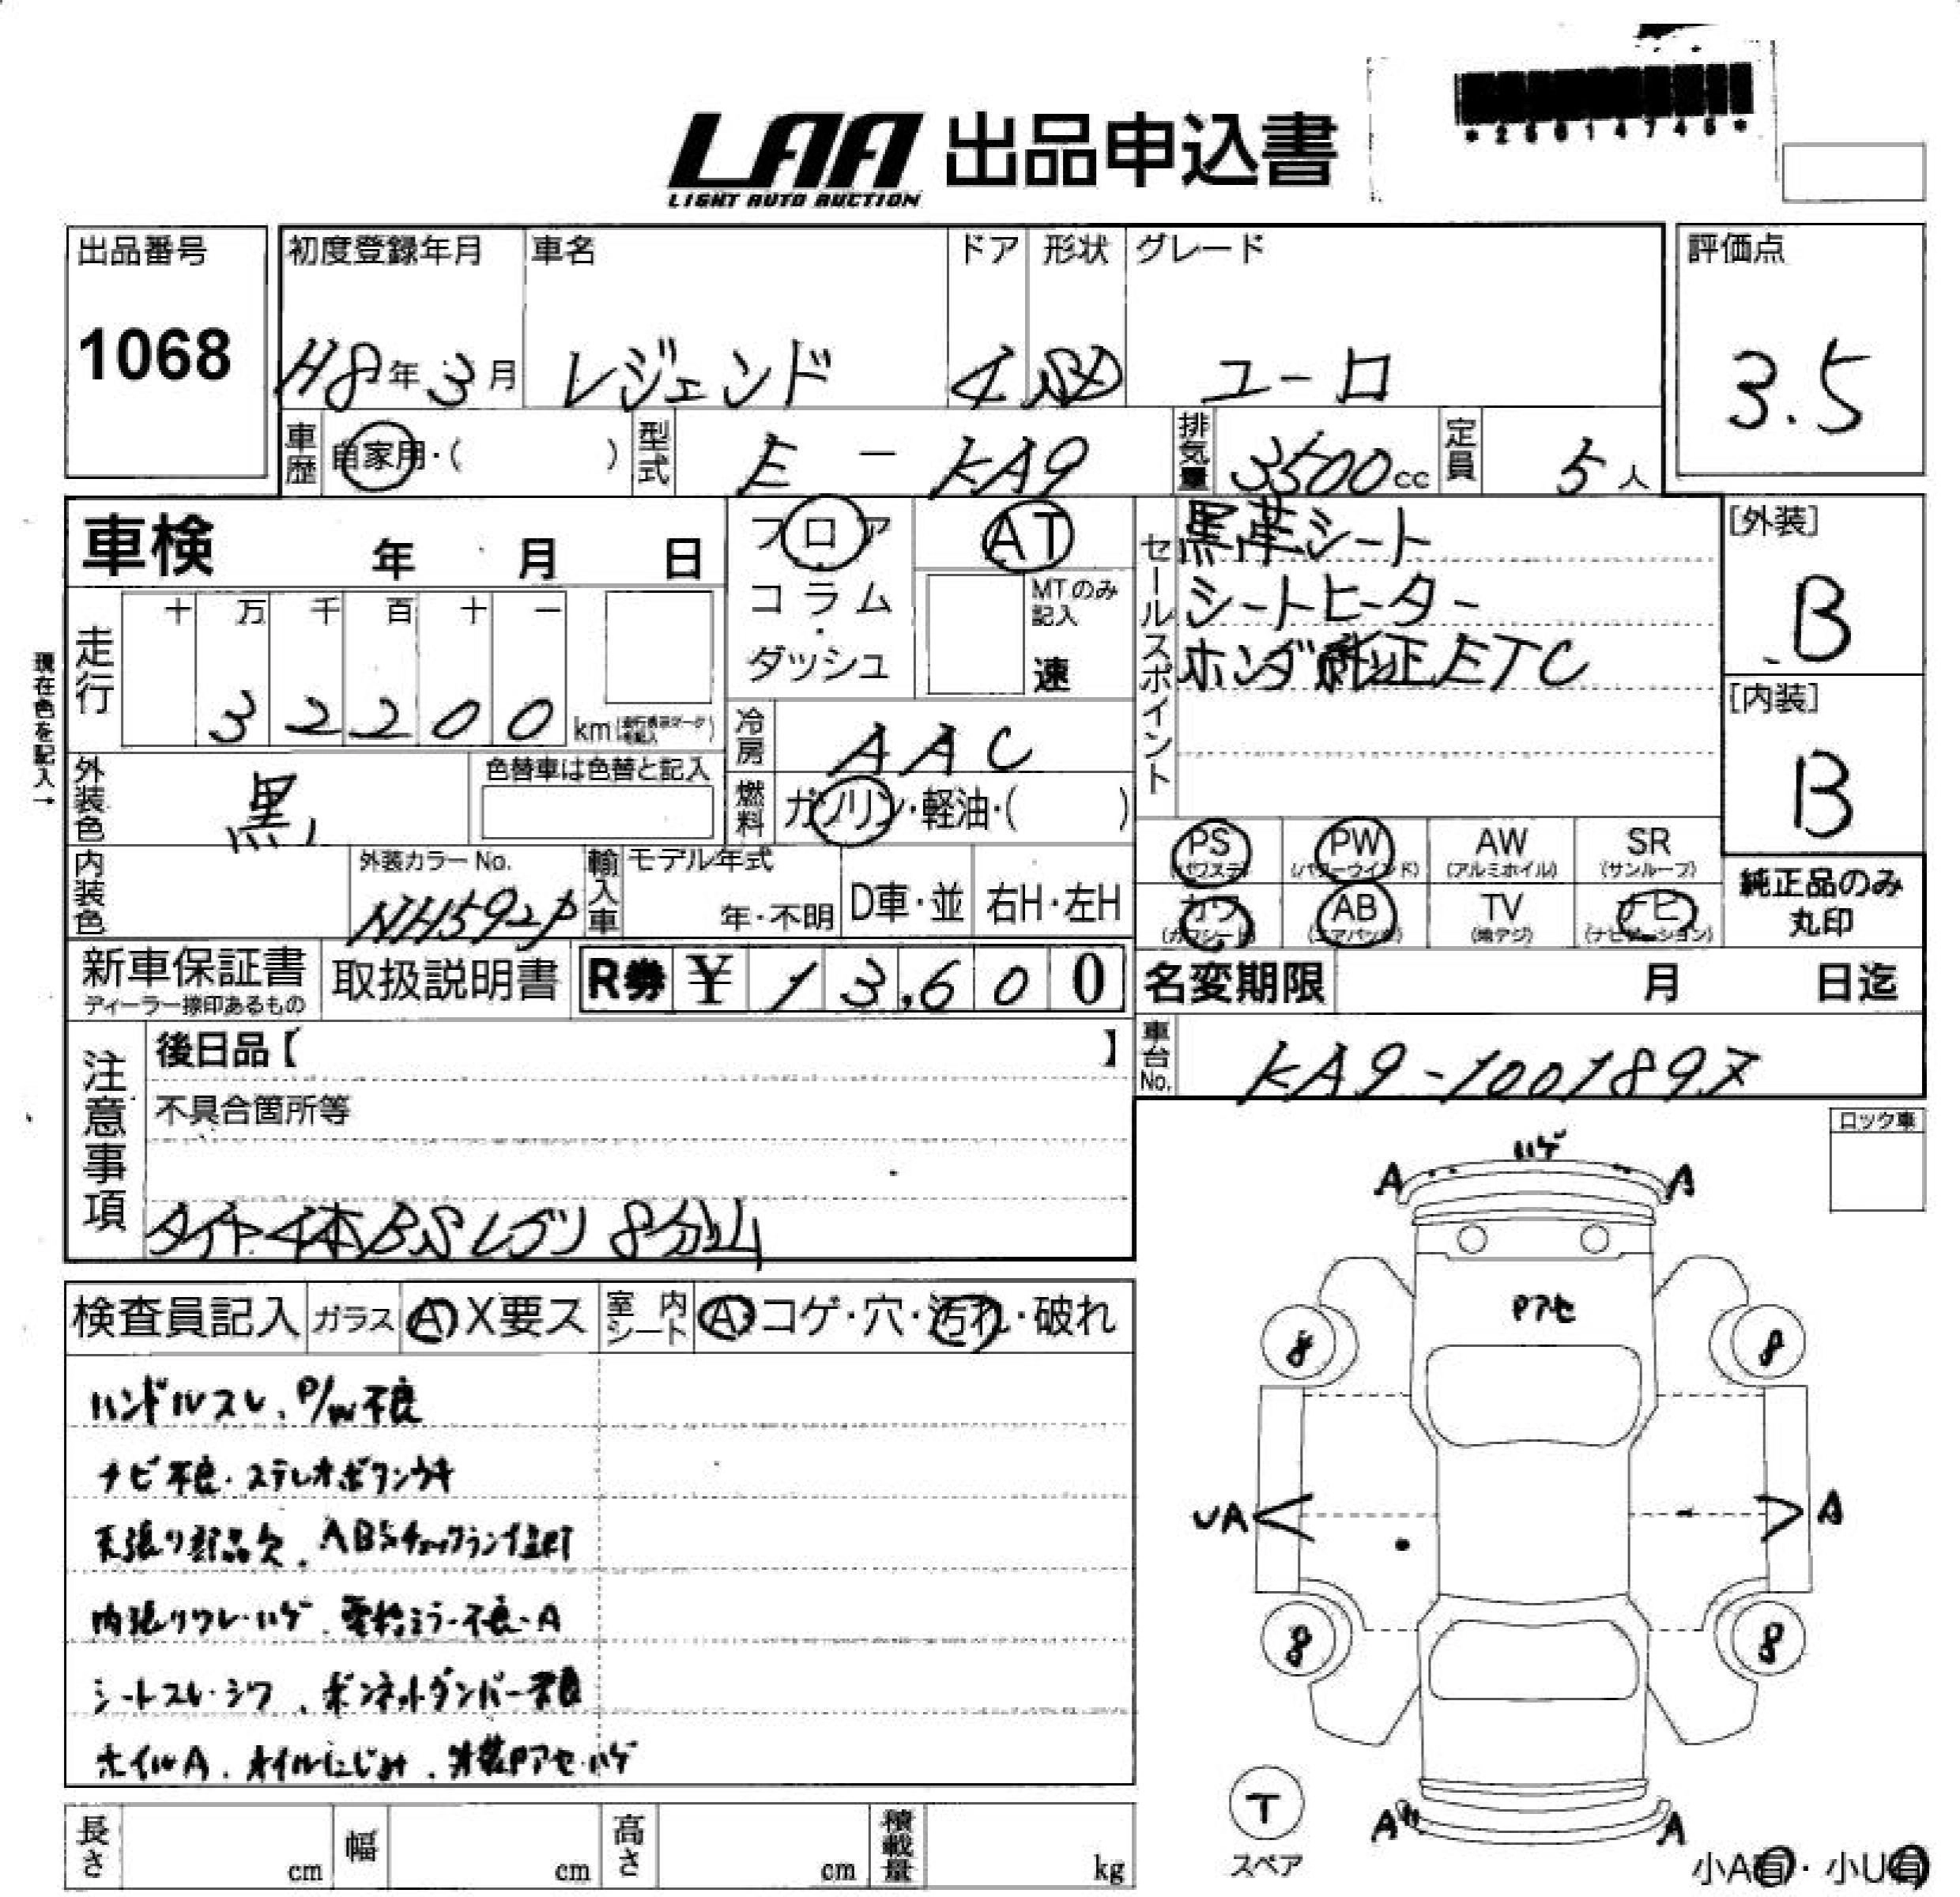 *25814745*
LAA 出品申込書
LIGHT AUTO AUCTION
出品番号
1068
初度登録年月
H8年3月
車名
レジェンド
ドア
4
形状
SD
グレード
ユーロ
評価点
3.5
車歴
自家用・( )
型式
E - KA9
排気量
3500cc
定員
5人
車検 年 月 日
フロア
コラム
ダッシュ
AT
MTのみ
記入
速
セールスポイント
黒革シート
シートヒーター
ホンダ純正ETC
[外装]
B
[内装]
B
現在色を記入→
走行
十 万 千 百 十 一
3 2 2 0 0 km
冷房
AAC
燃料
ガソリン・軽油・( )
外装色
黒
色替車は色替と記入
内装色
外装カラーNo.
NH592P
輸入車
モデル年式
年・不明
D車・並
右H・左H
PS
(パワステ)
PW
(パワーウインド)
AW
(アルミホイル)
SR
(サンルーフ)
カワ
(カワシート)
AB
(エアバッグ)
TV
(地デジ)
ナビ
(ナビゲーション)
純正品のみ
丸印
新車保証書
ディーラー捺印あるもの
取扱説明書
R券 ¥ 13,600
名変期限 月 日迄
車台No.
KA9-100189X
注意事項
後日品【 】
不具合箇所等
タイヤ4本BSレグノ8分山
ロック車
検査員記入
ガラス
A X要ス
室内シート
A コゲ・穴・汚れ・破れ
ハンドルスレ、P/W不良
ナビ不良・ステレオボタンウキ
天張り部品欠、ABSチェックランプ点灯
内張りワレ・ハゲ、電格ミラー不良・A
シートスレ・シワ、ボンネットダンパー不良
ホイルA、オイルにじみ、外装Pアセ・ハゲ
ハゲ
A A
Pアセ
8 8
UA A
8 8
T
スペア
A A
小A有・小U有
長さ cm
幅 cm
高さ cm
積載量 kg